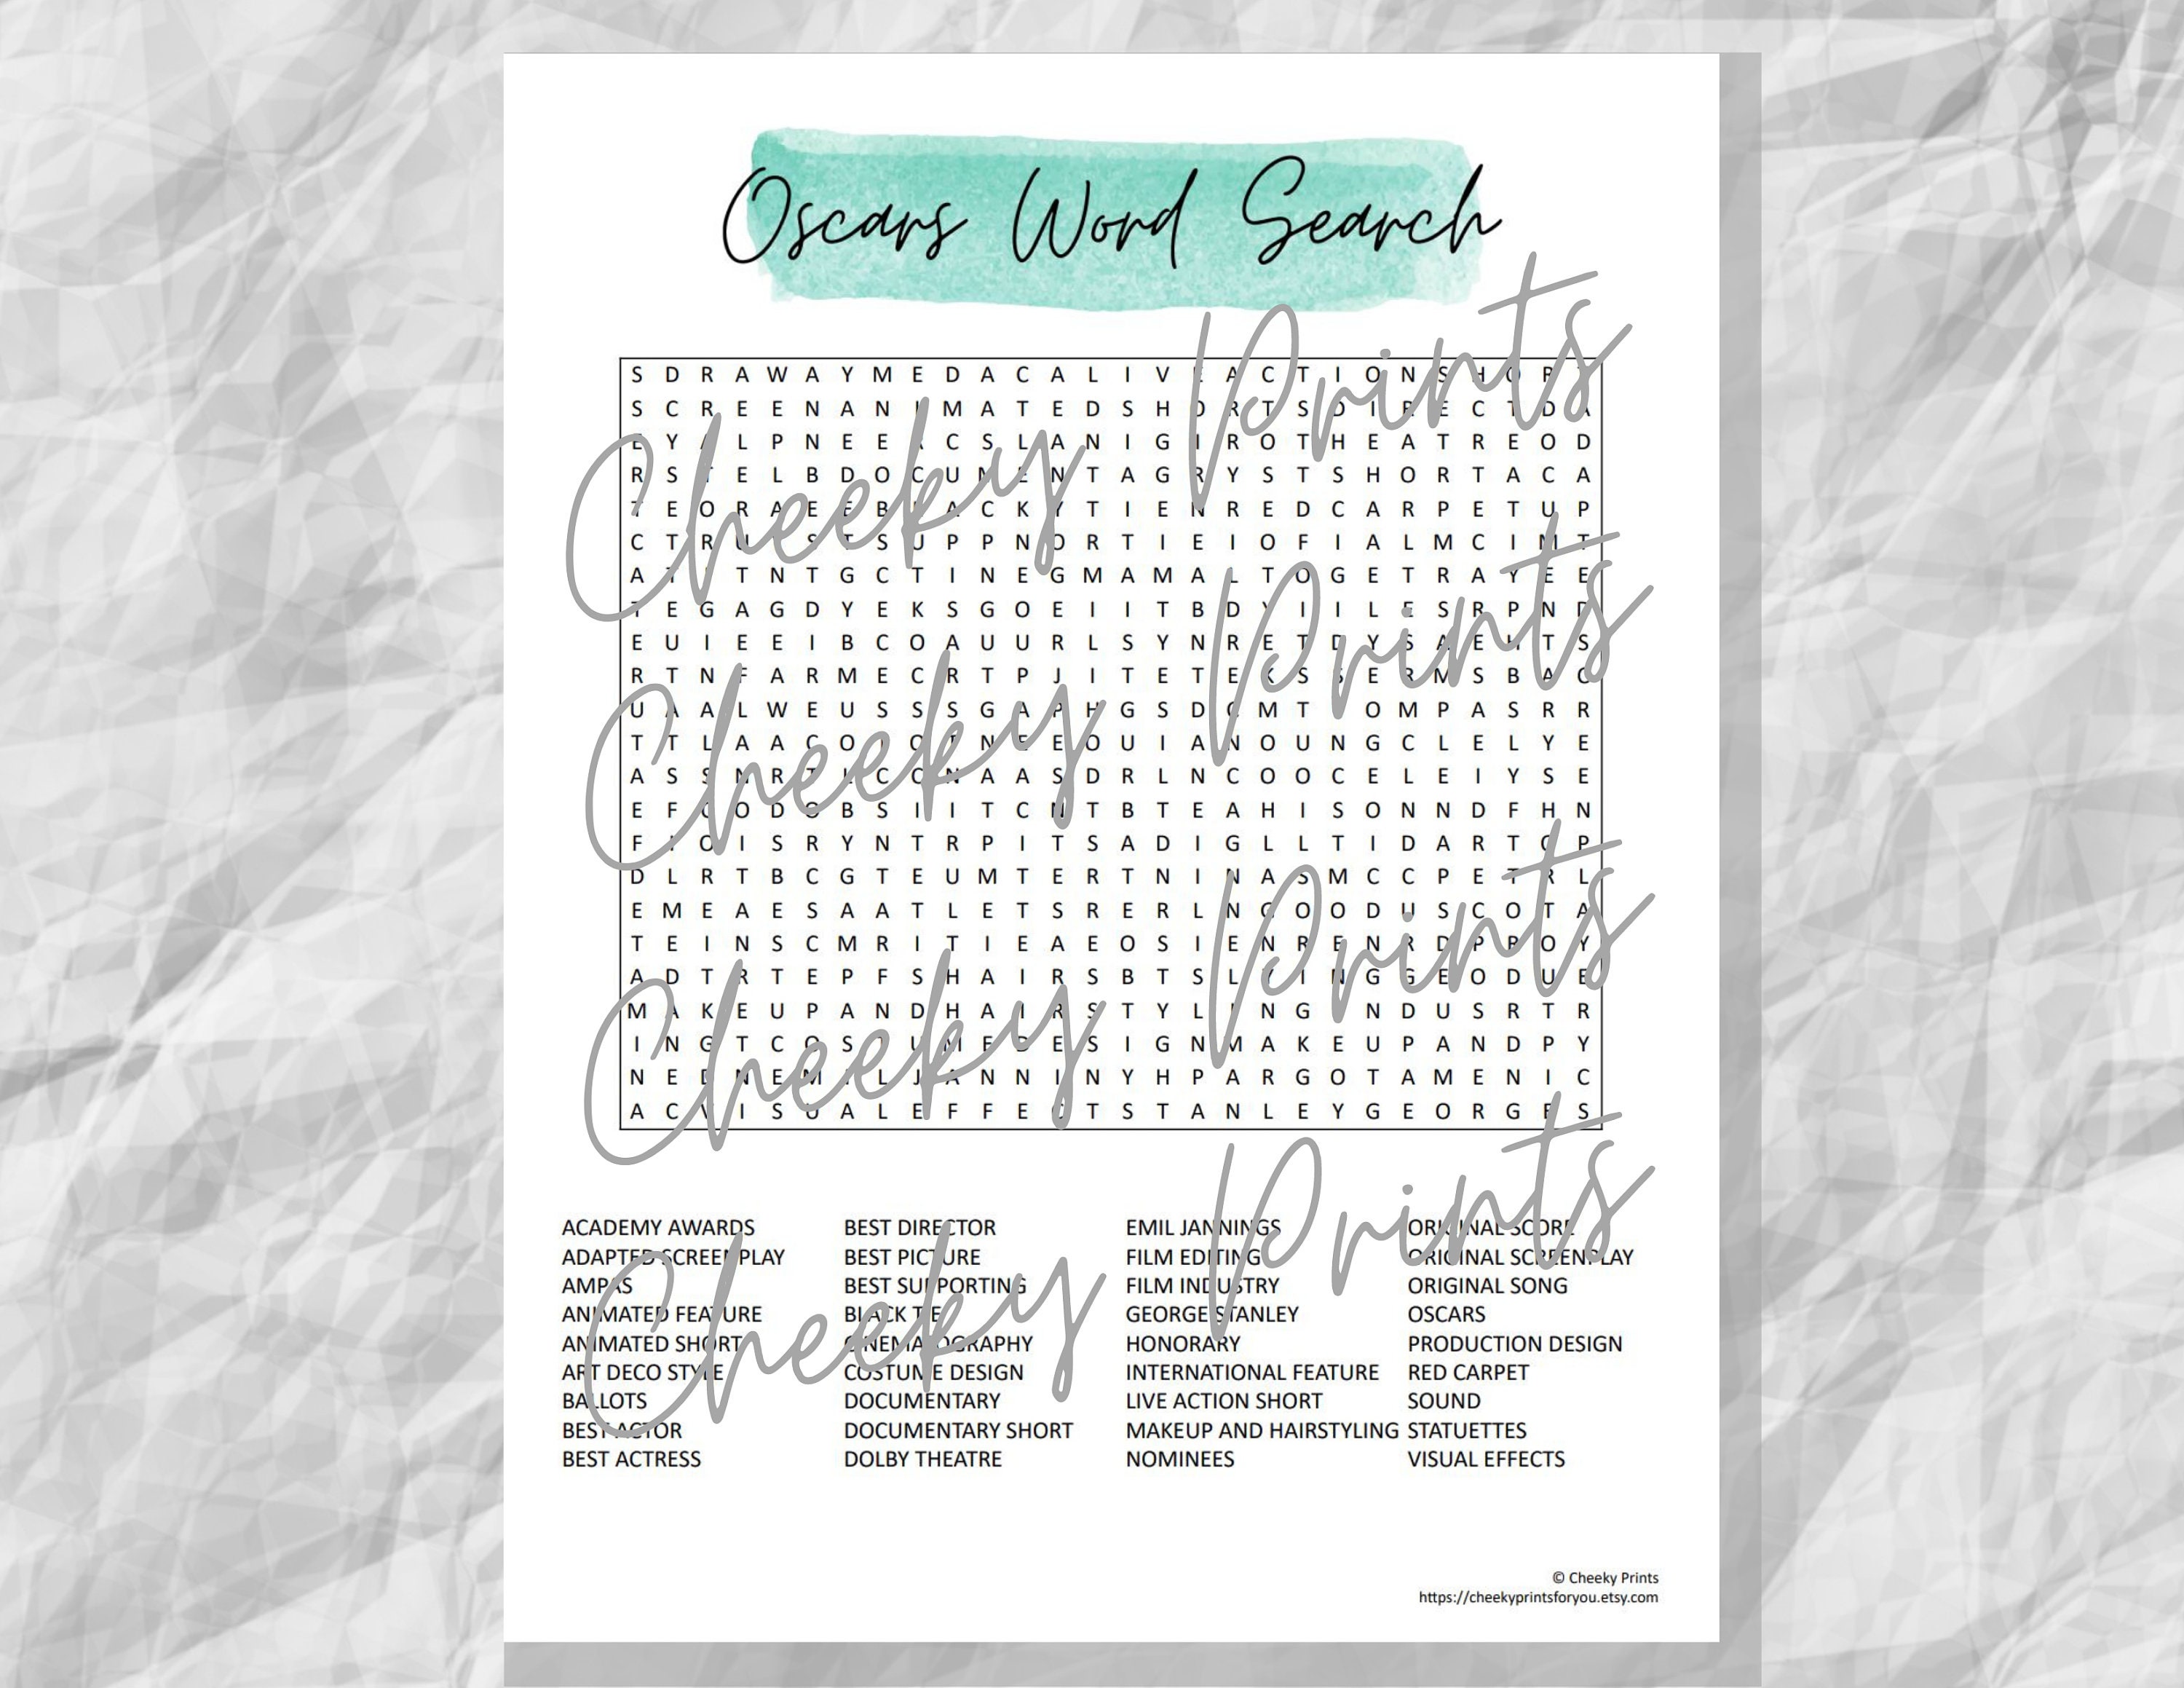 Oscars Word Search
S D R A W A Y M E D A C A L I V E A C T I O N S H O R T
S C R E E N A N I M A T E D S H O R T S D I R E C T D A
E Y A L P N E E R C S L A N I G I R O T H E A T R E O D
R S T E L B D O C U M E N T A G R Y S T S H O R T A C A
T E O R A E E B L A C K Y T I E N R E D C A R P E T U P
C T R U S T S U P P N O R T I E I O F I A L M C I M T
A T T N T G C T I N E G M A M A L T O G E T R A Y E E
T E G A G D Y E K S G O E I I T B D I I L E S R P N D
E U I E E I B C O A U U R L S Y N R E T D Y S A E T S
R T N F A R M E C R T P J I T E T E K S S E R M S B A C
U A A L W E U S S S G A P H G S D C M T O M P A S R R
T T L A A C O O N E E O U I A N O U N G C L E L Y E
A S S N R T L C C N A A S D R L N C O O C E L E I Y S E
E F C O D O B S I I T C N T B T E A H I S O N N D F H N
F O I S R Y N T R P I T S A D I G L L T I D A R T O P
D L R T B C G T E U M T E R T N I N A S M C C P E T R L
E M E A E S A A T L E T S R E R L N C O O D U S C O T A
T E I N S C M R I T I E A E O S I E N R E N R D P R O Y
A D T R T E P F S H A I R S B T S L Y I N G G E O D U E
M A K E U P A N D H A I R S T Y L I N G N D U S R T R
I N G T C O S T U M E D E S I G N M A K E U P A N D P Y
N E D N E M I L J A N N I N Y H P A R G O T A M E N I C
A C V I S U A L E F F E C T S T A N L E Y G E O R G E S
ACADEMY AWARDS BEST DIRECTOR EMIL JANNINGS ORIGINAL SCORE
ADAPTED SCREENPLAY BEST PICTURE FILM EDITING ORIGINAL SCREENPLAY
AMPAS BEST SUPPORTING FILM INDUSTRY ORIGINAL SONG
ANIMATED FEATURE BLACK TIE GEORGE STANLEY OSCARS
ANIMATED SHORT CINEMATOGRAPHY HONORARY PRODUCTION DESIGN
ART DECO STYLE COSTUME DESIGN INTERNATIONAL FEATURE RED CARPET
BALLOTS DOCUMENTARY LIVE ACTION SHORT SOUND
BEST ACTOR DOCUMENTARY SHORT MAKEUP AND HAIRSTYLING STATUETTES
BEST ACTRESS DOLBY THEATRE NOMINEES VISUAL EFFECTS
Cheeky Prints
Cheeky Prints
Cheeky Prints
Cheeky Prints
© Cheeky Prints
https://cheekyprintsforyou.etsy.com